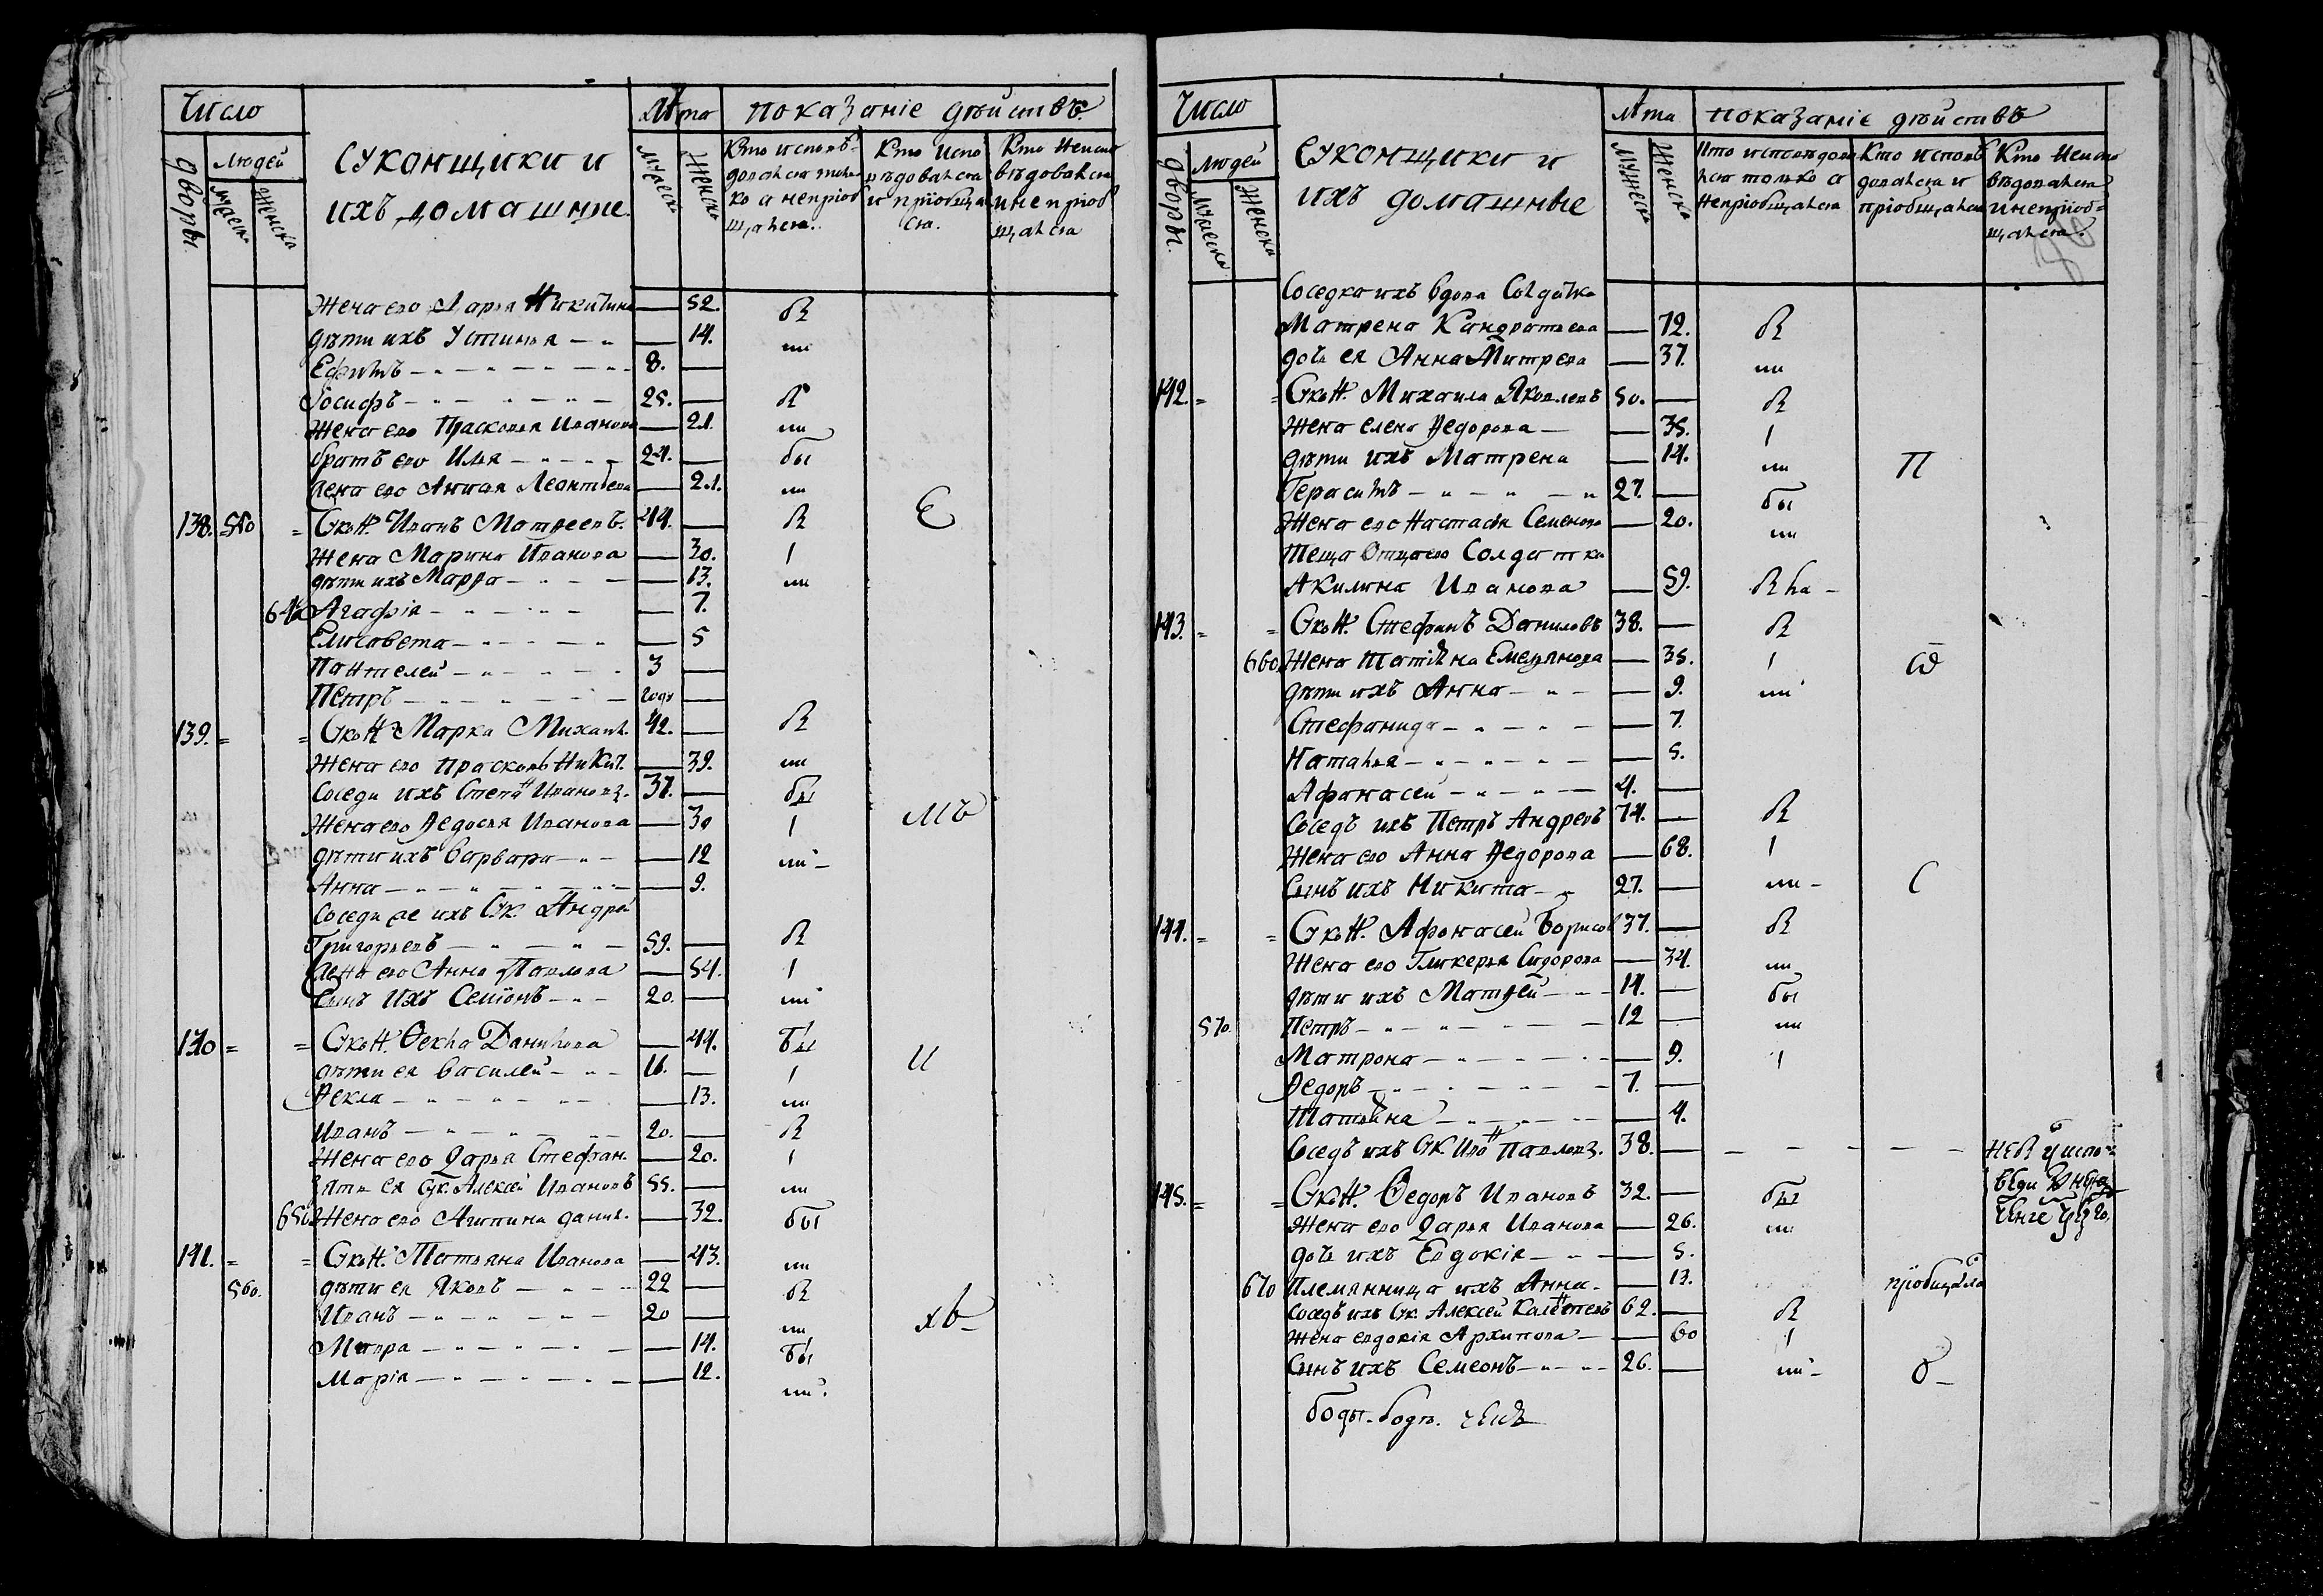 Число
людей
дворы
мужеска
женска
Суконщики и
ихъ домашние
Лѣта
мужеск
женска
показаніе дѣйствъ
Кто исповѣ-
довался толь
ко а непріоб
щался.
Кто испо
вѣдовался
и пріобщал
ся.
Кто неиспо
вѣдовался
инепріоб
щался
Жена его Дарья Никитина — 52. Я
дѣти ихъ Устинья — 14. ли
Ефимъ 8. —
Іосифъ 25. — Я
Жена его Прасковья Иванова — 21. ли
братъ его Илья 24. — бы
жена его Анна Леонтьева — 21. ли Є
138. 550 Сукон. Иванъ Матвеевъ. 44. — Я
Жена Марина Иванова — 30. 1
дѣти ихъ Марфа — 13. ли
640 Агафія — 7.
Елисавета — 5
Пантелей 3 —
Петръ году —
139. Сукон Марка Михаил. 42. — Я
Жена его Прасковь Никит. — 39. ли
Соседи ихъ Степан Ивановъ. 37. — бы
Жена его Федосья Иванова — 30 1 мъ
дѣти ихъ Варвара — 12 ли
Анна — 9.
Соседи же ихъ Сук. Андрей
Григорьевъ 59. — Я
жена его Анна Павлова — 54. 1
Сынъ ихъ Семіонъ 20. — ли
140 Сукон. Фекла Данилова — 44. бы и
дѣти ея Василей 16. — 1
Фекла — 13. ли
Иванъ 20. — Я
Жена его Дарья Стефан. — 20. 1
зять ея Сук. Алексей Ивановъ 55. — ли
650 Жена его Агипина данил. — 32. бы
141. Сукон. Татьяна Иванова — 43. ли
560. дѣти ея Яковъ 22 — Я
Иванъ 20 — ли хв
Мавра — 14. бы
Марія — 12. ли.
Число
людей
дворы.
мужеска
женска
Суконщики и
ихъ домашные
Лѣта
мужеска
женска
показаніе дѣйствъ
Кто исповѣдова
лся только а
непріобщался
Кто исповѣ
довался и
пріобщался
Кто неиспо
вѣдовался
инепріоб-
щался.
Соседка ихъ вдова Солдатка
Матрена Кандратьева — 72. Я
дочь ея Анна Митрева — 37. ли
142. Сукон. Михаила Яковлевъ 50. — Я
Жена елена Федорова — 35. 1
дѣти ихъ Матрена — 14. ли П
Герасимъ 27. — бы
Жена его Настасья Семенова — 20. ли
Теща отца его Солдатка
Акилина Иванова — 59. Я ла
143. Сукон. Стефанъ Даниловъ 38. — Я
660. Жена Татіяна Емельянова — 35. 1 ѿ
дѣти ихъ Анна — 9. ли
Стефанида — 7.
Наталья — 5.
Афанасей 4. —
Соседъ ихъ Петръ Андреевъ 74. — Я
Жена его Анна Федорова — 68. 1
Сынъ ихъ Никита 27. — ли С
144. Сукон. Афонасей Борисов 37. — Я
Жена его Гликерья Сидорова — 34. ли
дѣти ихъ Матвей 14. — бы
570. Петръ 12 — ли
Матрона — 9. 1
Федоръ 7. —
Татьяна — 4.
Соседъ ихъ Сук. Иван Павловъ. 38. —
145. Сукон. Федоръ Ивановъ 32. — бы
Жена его Дарья Иванова — 26. ли
дочь ихъ Евдокія — 5.
670 Племянница ихъ Анна — 13. пріобщала
Соседъ ихъ Сук. Алексей 62. — Я
Жена евдокія Архипова — 60 1
Сынъ ихъ Семеонъ 26. — ли б